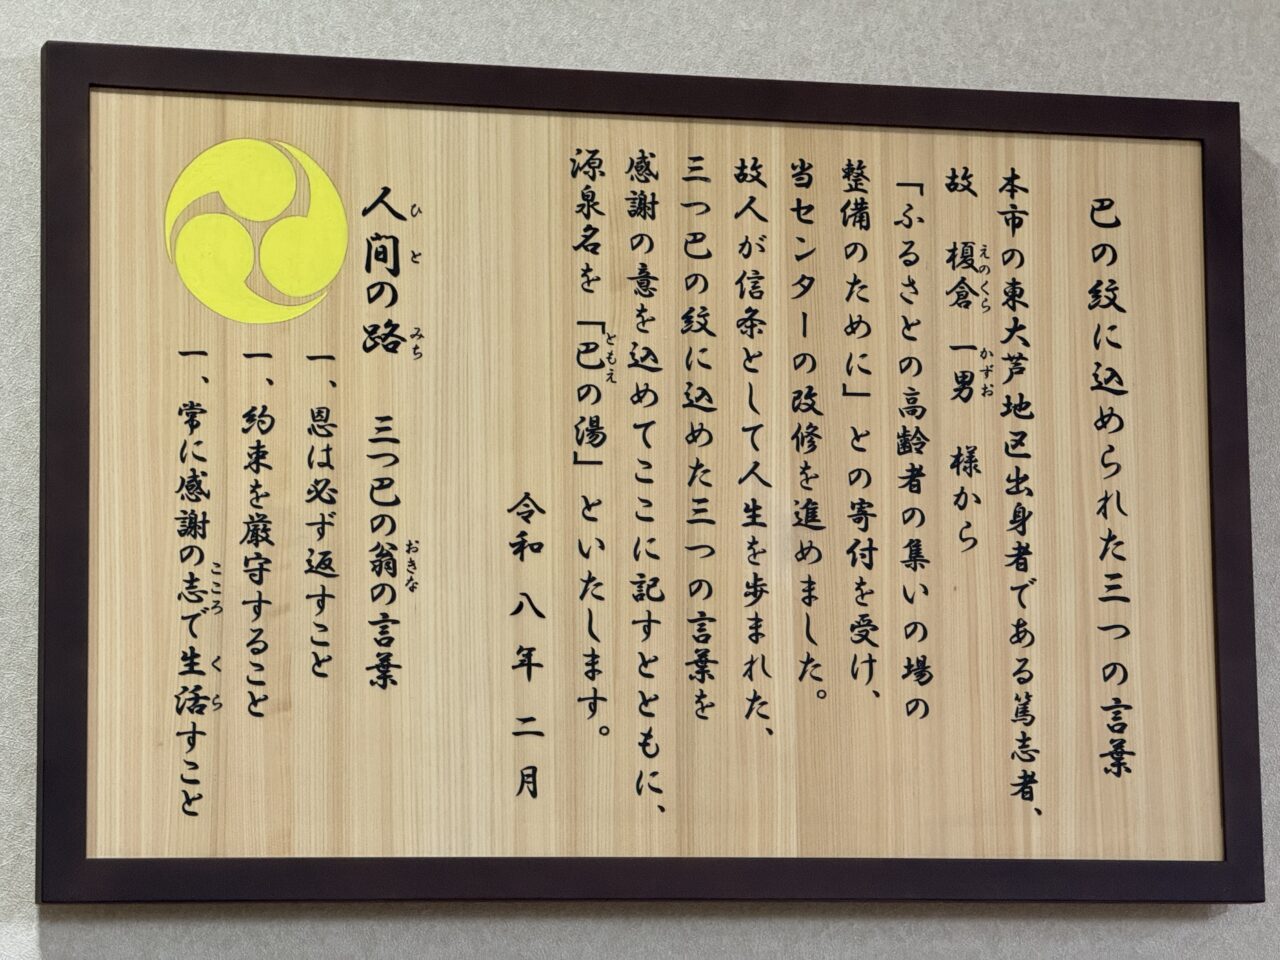 巴の紋に込められた三つの言葉
本市の東大芦地区出身者である篤志者、
故 榎倉 一男 様から
えのくら かずお
「ふるさとの高齢者の集いの場の
整備のために」との寄付を受け、
当センターの改修を進めました。
故人が信条として人生を歩まれた、
三つ巴の紋に込めた三つの言葉を
感謝の意を込めてここに記すとともに、
源泉名を「巴の湯」といたします。
ともえ
令和八年二月
人間の路 三つ巴の翁の言葉
ひと みち おきな
一、恩は必ず返すこと
一、約束を厳守すること
一、常に感謝の志で生活すこと
こころ くら